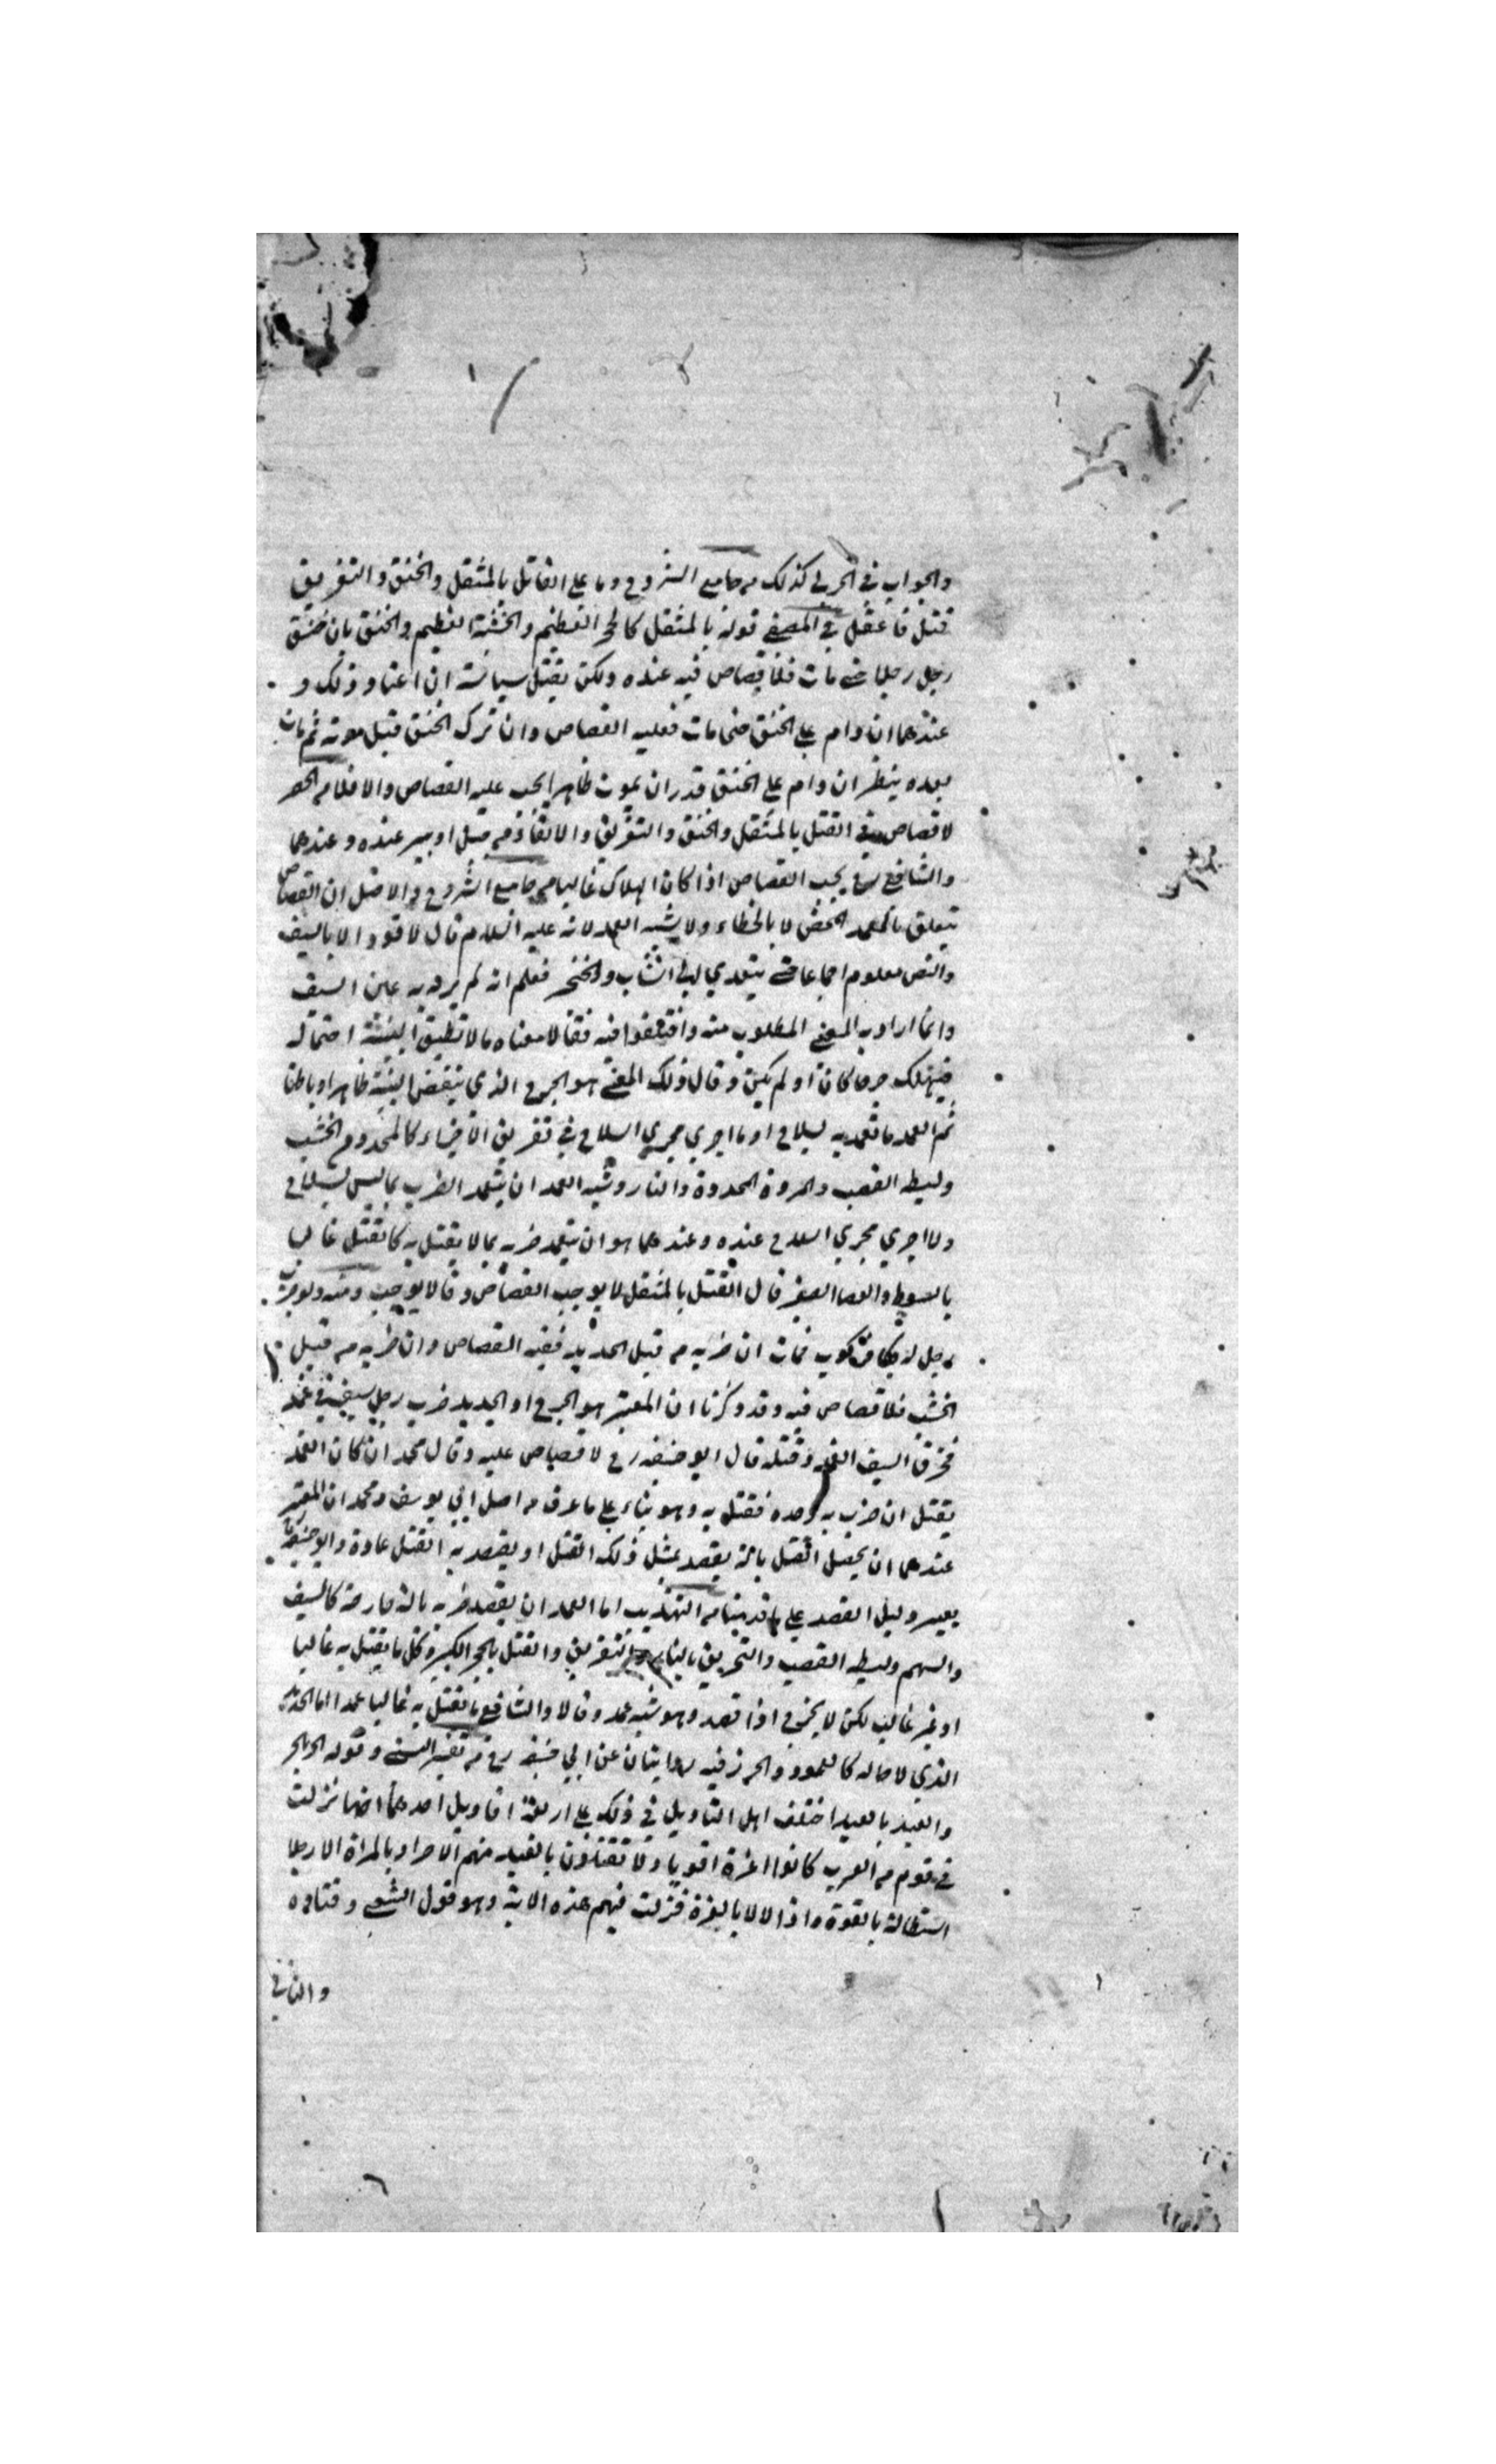 والجواب في الحربي كذلك من جامع الشروح وما على القاتل بالمثقل والخنق والتغريق
قتل فاعقل في المصفى قوله بالمثقل كالحجر العظيم والخشبة العظيم والخنق بان خنق
رجل رجلا حتى مات فلا قصاص فيه عنده ولكن يقتل سياسة ان اعتاد ذلك و
عندهما ان دام على الخنق حتى مات فعليه القصاص وان ترك الخنق قبل موته ثم مات
بعده ينظر ان دام على الخنق قدر ان يموت ظاهرا يجب عليه القصاص والا فلا من الحصر
لا قصاص في القتل بالمثقل والخنق والتغريق والالقاء من جبل او بير عنده وعندهما
والشافعي رح يجب القصاص اذا كان الهلاك غالبا من جامع الشروح والاصل ان القصاص
يتعلق بالعمد المحض لا بالخطاء ولا بشبه العمد لانه عليه السلام قال لا قود الا بالسيف
والنص معلوم اجماعا حتى يتعدي الى النشاب والخنجر فعلم انه لم يرد به عين السيف
وانما اراد به المعنى المطلوب منه فقالا معناه ما لا تطيق البنية احتماله
فيهلك جرحا كان او لم يكن وقال ذلك المعنى هو الجرح الذي ينقض البنية ظاهرا وباطنا
ثم العمد ما تعمد به بسلاح او ما اجري مجري السلاح في تفريق الاجزاء كالمحدد من الخشب
وليطه القصب والمروة المحددة والنار وشبه العمد ان يتعمد الضرب بما ليس بسلاح
ولا اجري مجري السلاح عنده وعندهما هو ان يتعمد ضربه بما لا يقتل به غالبا
بالسوط والعصا الصغير قال القتل بالمثقل لا يوجب القصاص وقالا يوجب ومنه ولو ضرب
رجل فمات ان ضربه من قبل الحديد ففيه القصاص وان ضربه من قبل
الخشب فلا قصاص فيه وقد ذكرنا ان المعتبر هو الجرح او الحديد ضرب رجل بسيف في غمد
فخرق السيف الغمد وقتله قال ابو حنيفه رح لا قصاص عليه وقال محمد ان كان الغمد
يقتل ان ضرب به وحده فقتل به وهو بناء على ما عرف من اصل ابي يوسف ومحمد ان المعتبر
عندهما ان يحصل القتل بالة يقصد بمثل ذلك القتل او يقصد به القتل عادة وابو حنيفة
يعتبر دليل القصد على ما قد بينا من التهذيب اما العمد ان يقصد ضربه بالة جارحة كالسيف
والسهم وليطه القصب والتحريق بالنار والتغريق والقتل بالحجر الكبير وكل ما يقتل به غالبا
او غير غالب لكن لا يجرح اذا قصد وهو شبه عمد وقالا والشافعي ما يقتل به غالبا عمدا اما الحديد
الذي لا حد له كالعمود والحرز فيه روايتان عن ابي حنيفه رح من تفسير النسفي وقوله الحر بالحر
والعبد بالعبد اختلف اهل التاويل في ذلك على اربعة اقاويل احدهما انها نزلت
في قوم من العرب كانوا اعزة اقويا ولا تقتلون بالعبد منهم الا حرا وبالمراة الا رجلا
استطالة بالقوة واذلالا بالعزة فنزلت فيهم هذه الاية وهو قول الشعبي وقتاده
والثاني